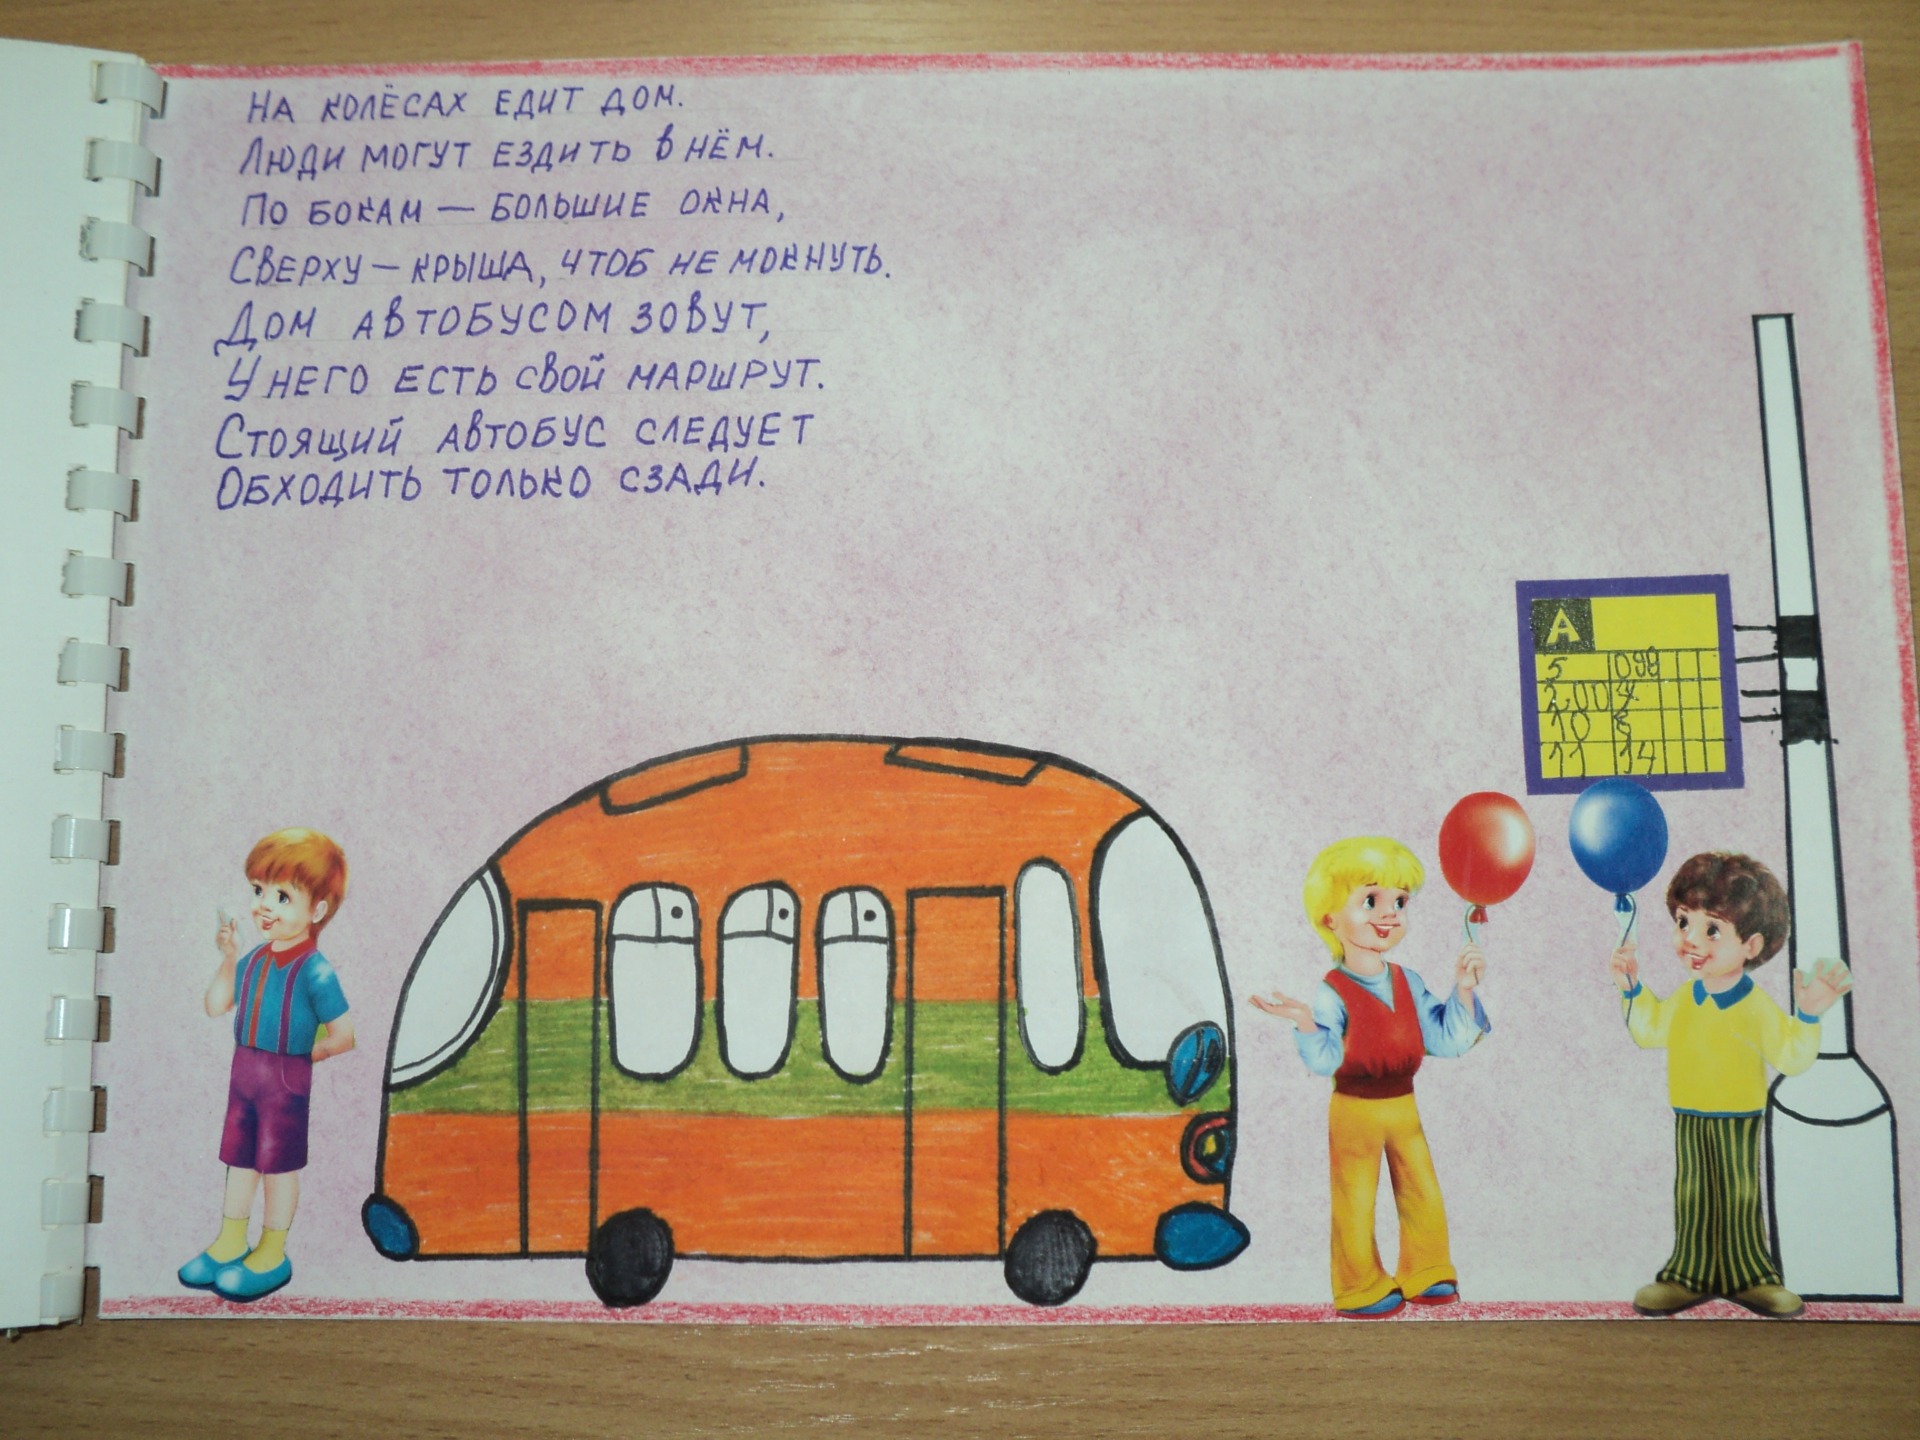 На колёсах едит дом.
Люди могут ездить в нём.
По бокам — большие окна,
Сверху — крыша, чтоб не мокнуть.
Дом автобусом зовут,
У него есть свой маршрут.
Стоящий автобус следует
Обходить только сзади.
А
5
10
11 14